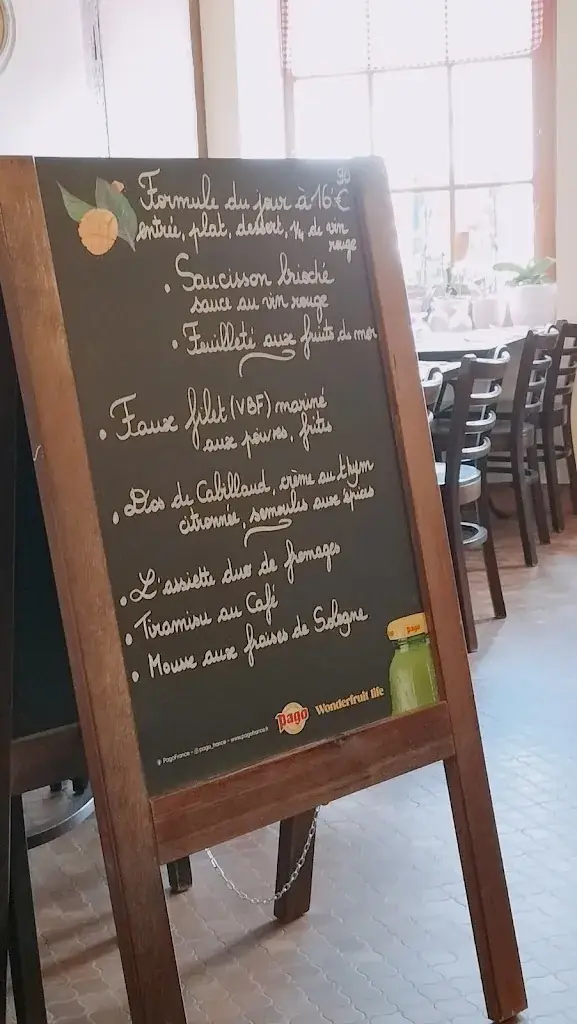 Formule du jour à 16€90
entrée, plat, dessert, ¼ de vin
rouge
• Saucisson brioché
sauce au vin rouge
• Feuilleté aux fruits de mer
• Faux filet (VBF) mariné
aux poivres, frites
• Dos de Cabillaud, crème au thym
citronnée, semoules aux épices
• L'assiette duo de fromages
• Tiramisu au Café
• Mousse aux fraises de Sologne
pago Wonderfruit life
PagoFrance - @pago_france - www.pagofrance.fr
pago